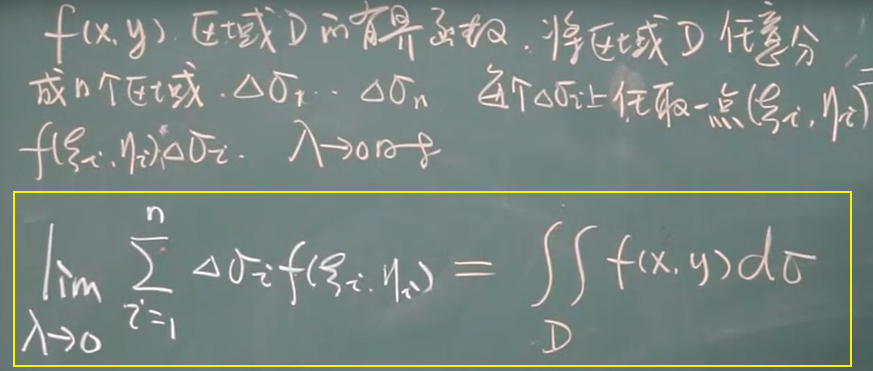 f(x,y).区域D的有界函数.将区域D任意分
成n个区域.Δσ₁...Δσₙ 每个Δσᵢ上任取一点(ξᵢ,ηᵢ)
f(ξᵢ,ηᵢ)Δσᵢ. λ→0时
lim_{λ→0} ∑_{i=1}^{n} Δσᵢf(ξᵢ,ηᵢ) = ∬_D f(x,y)dσ